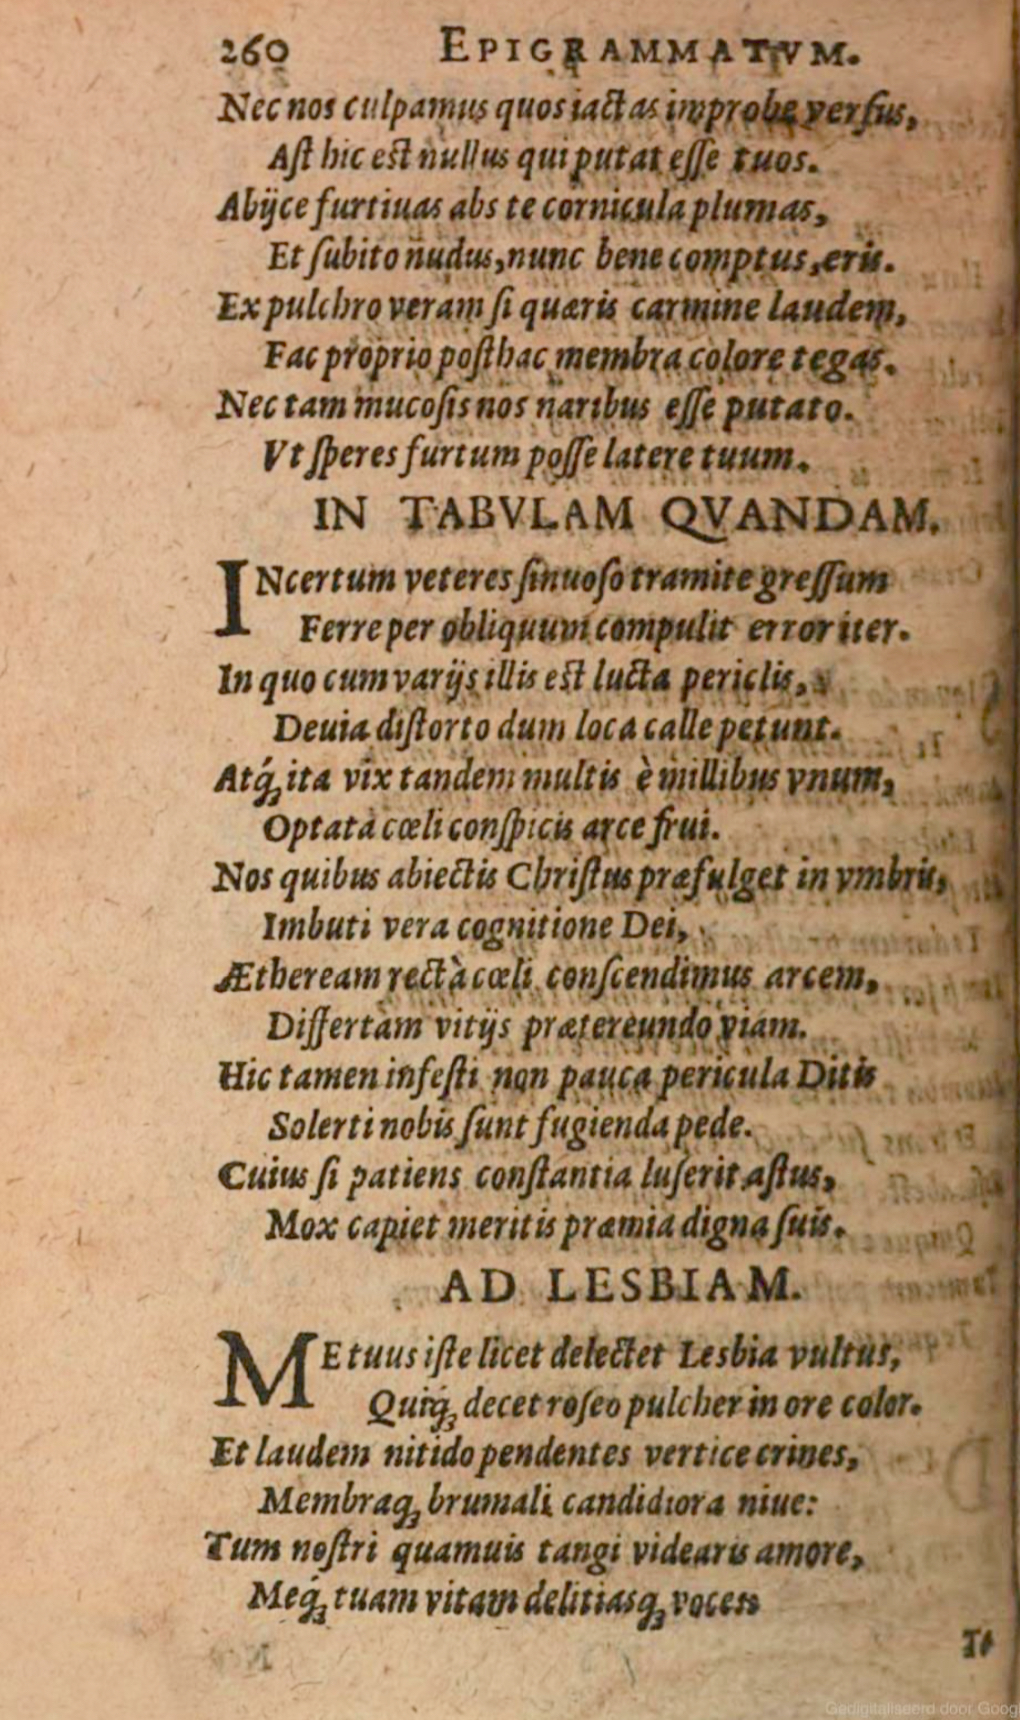 260 EPIGRAMMATVM.
Nec nos culpamus quos iactas improbe versus,
Ast hic est nullus qui putat esse tuos.
Abijce furtiuas abs te cornicula plumas,
Et subito nudus, nunc bene comptus, eris.
Ex pulchro veram si quæris carmine laudem,
Fac proprio posthac membra colore tegas.
Nec tam mucosis nos naribus esse putato.
Vt speres furtum posse latere tuum.
IN TABVLAM QVANDAM.
INcertum veteres sinuoso tramite gressum
Ferre per obliquum compulit error iter.
In quo cum varijs illis est lucta periclis,
Deuia distorto dum loca calle petunt.
Atq́; ita vix tandem multis è millibus vnum,
Optata cœli conspicis arce frui.
Nos quibus abiectis Christus præfulget in vmbris,
Imbuti vera cognitione Dei,
Æthereám rectà cœli conscendimus arcem,
Differtam vitijs prætereundo viam.
Hic tamen infesti non pauca pericula Ditis
Solerti nobis sunt fugienda pede.
Cuius si patiens constantia luserit astus,
Mox capiet meritis præmia digna suis.
AD LESBIAM.
ME tuus iste licet delectet Lesbia vultus,
Quiq́; decet roseo pulcher in ore color.
Et laudem nitido pendentes vertice crines,
Membraq; brumali candidiora niue:
Tum nostri quamuis tangi videaris amore,
Meq́; tuam vitam delitiasq; voces
Gedigitaliseerd door Goog